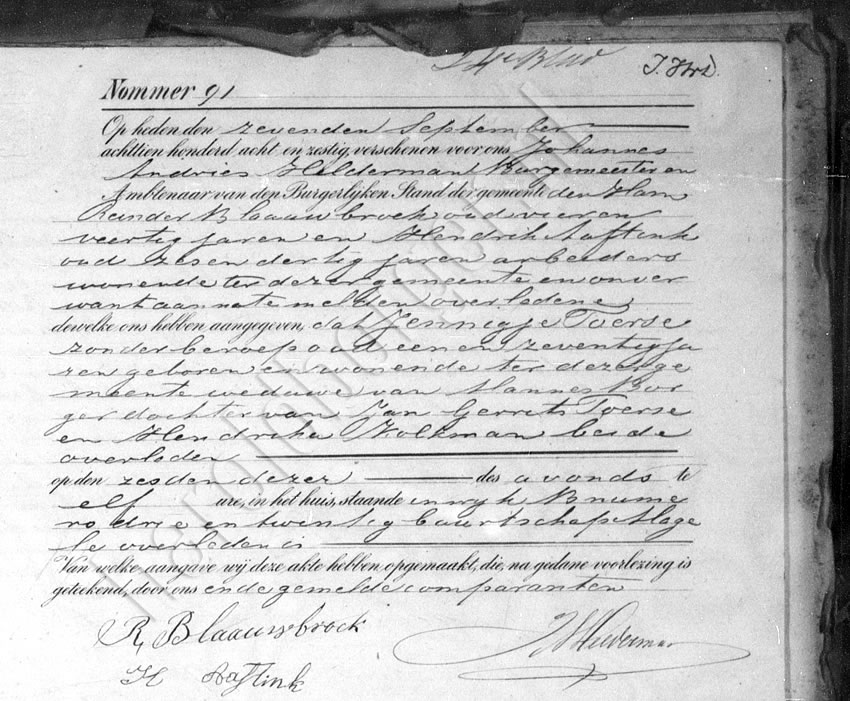 24e Blad
Nommer 91
Op heden den zevenden September
achttien honderd acht en zestig, verschenen voor ons Johannes
Andries Helderman Burgemeester en
Ambtenaar van den Burgerlijken Stand der gemeente den Ham
Blaauwbroek oud vier en
veertig jaren en Hendrik Aaftink
oud zes en dertig jaren arbeiders
wonende te dezer gemeente en onver
want aan na te melden overledene
dewelke ons hebben aangegeven, dat Jennigje Toerse
zonder beroep oud een en zeventig ja
ren geboren en wonende ter dezer ge
meente weduwe van Hannes Bor
ger dochter van Jan Gerrits Toerse
en Hendrika Kolkman beide
overleden
op den zesden dezer des avonds te
elf ure, in het huis, staande in wijk B nume
ro drie en twintig buurtschap Mage
le overleden is
Van welke aangave wij deze akte hebben opgemaakt, die, na gedane voorlezing is
geteekend, door ons en de gemelde comparanten
R Blaauwbroek
H Aaftink